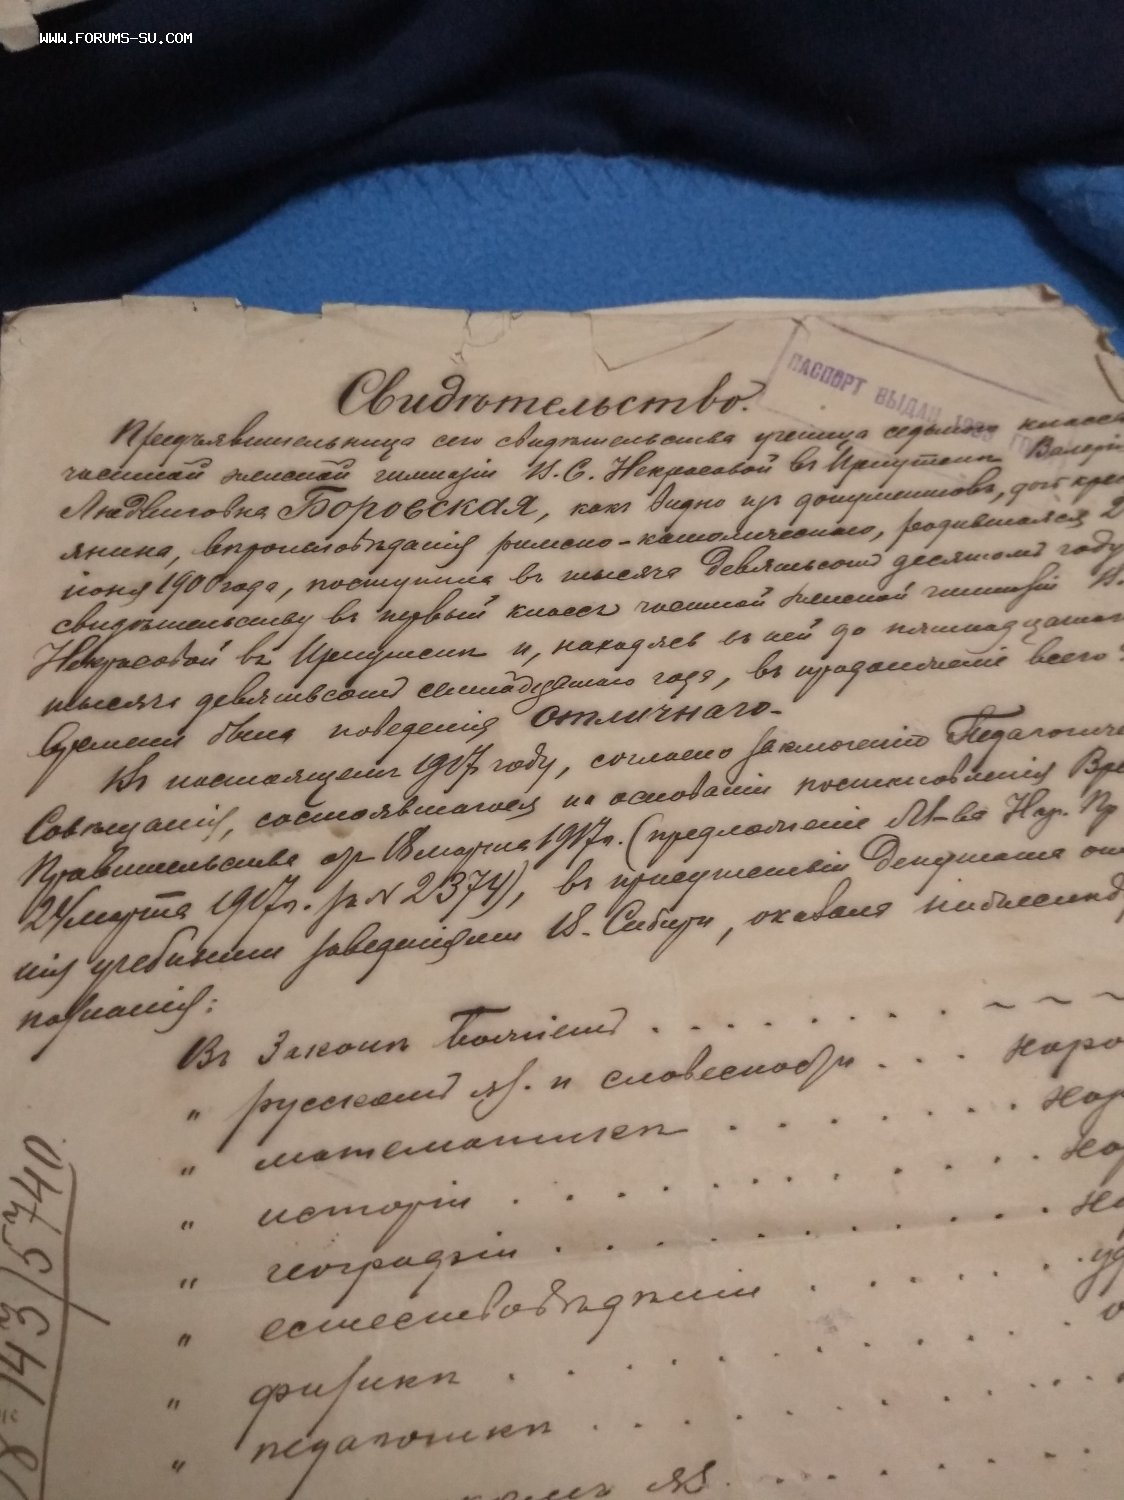 WWW.FORUMS-SU.COM
ПАСПОРТ ВЫДАН
Свидѣтельство.
Предъявительница сего свидѣтельства ученица седьмого класса
частной женской гимназіи В. С. Некрасовой въ Иркутскѣ Валерія
Людвиговна Боровская, какъ видно изъ документовъ, дочь крес
янина, вѣроисповѣданія римско-католическаго, родившаяся 2
іюня 1900 года, поступила въ тысяча девятьсотъ десятомъ году
свидѣтельству въ первый классъ частной женской гимназіи В.
Некрасовой въ Иркутскѣ и, находясь въ ней до пятнадцатаго
тысяча девятьсотъ семнадцатаго года, въ продолженіе всего
времени была поведенія отличнаго.
Въ настоящемъ 1917 году, согласно заключенію Педагогиче
Совѣщанія, состоявшагося на основаніи постановленія Вре
Правительства отъ 18 марта 1917 г. (предложеніе М-ва Нар. Пр
24 марта 1917 г. за № 2374), въ присутствіи Депутата от
нія учебными заведеніями В. Сибири, оказала нижеслѣд
познанія:
Въ Законѣ Божіемъ . . . . . . . ~ ~ ~
" русскомъ яз. и словесности . . . хоро
" математикѣ . . . . . . хор
" исторіи . . . . . . . . . . хор
" географіи . . . . . . . . . хо
" естествовѣдѣніи . . . . . . уд
" физикѣ . . . . . . . . . . о
" педагогикѣ . . . . . . . . .
яз. . . . . . .
143/5740